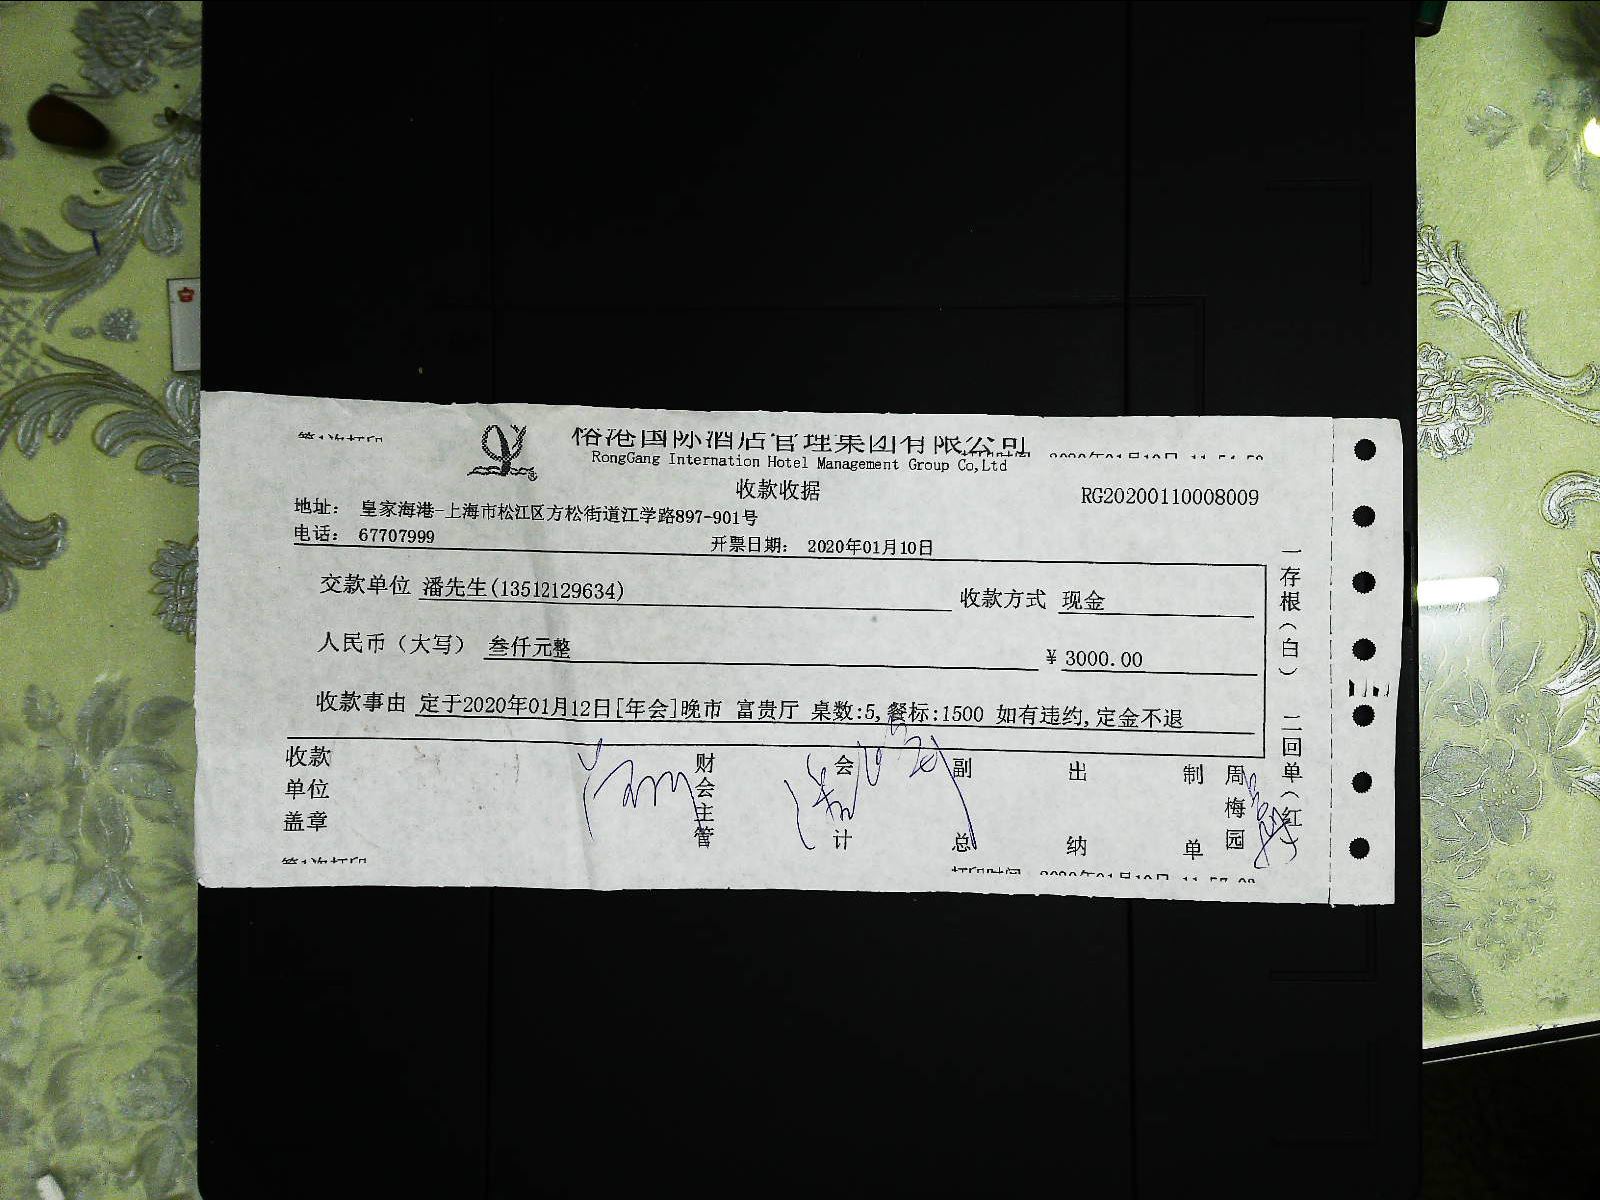 第1次打印
榕港国际酒店管理集团有限公司
打印时间 2020年01月10日 11:54:52
RongGang Internation Hotel Management Group Co,Ltd
收款收据
RG20200110008009
地址： 皇家海港-上海市松江区方松街道江学路897-901号
电话： 67707999
开票日期： 2020年01月10日
交款单位 潘先生(13512129634)
收款方式 现金
人民币（大写） 叁仟元整
¥ 3000.00
收款事由 定于2020年01月12日[年会]晚市 富贵厅 桌数:5,餐标:1500 如有违约,定金不退
收款单位盖章
财会主管
会计
副总
出纳
制单
周梅园
一存根（白） 二回单（红
第1次打印
打印时间 2020年01月10日 11:57:02